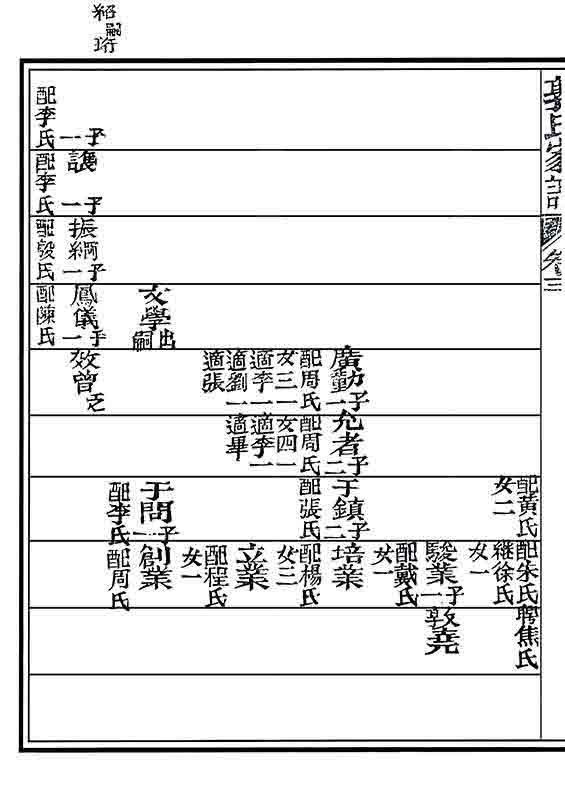 家譜 卷三
配黃氏 配朱氏 聘焦氏
女二 繼徐氏
女一
駿業 子一 敦堯
配戴氏
女一
廣勳 子一 允者 子二 于鎮 子二 培業
配周氏 配周氏 配張氏 配楊氏
女三一 女四一 女三
適李一 適李一
立業
適劉一 適畢
適張 配程氏
女一
文學 出嗣 于問 子一 創業
配李氏 配周氏
紹珩嗣
子一 讓 子一 振綱 子一 鳳儀 子一 效曾
配李氏 配李氏 配殷氏 配陳氏